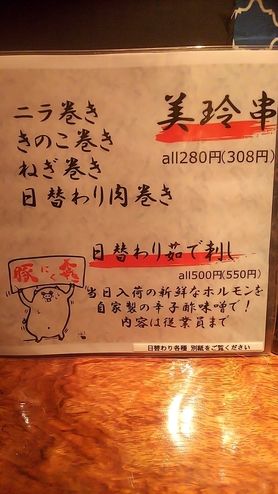 美玲串
all280円(308円)
ニラ巻き
きのこ巻き
ねぎ巻き
日替わり肉巻き
日替わり茹で刺し
all500円(550円)
当日入荷の新鮮なホルモンを
自家製の辛子酢味噌で！
内容は従業員まで
日替わり各種 別紙をご覧ください